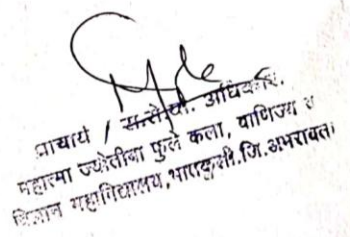 प्राचार्य / स.रा.यो. अधिकारी.
महात्मा ज्योतीबा फुले कला, वाणिज्य व
विज्ञान महाविद्यालय, भातकुली.जि.अमरावती